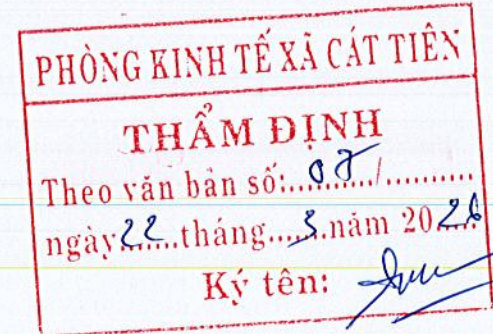 PHÒNG KINH TẾ XÃ CÁT TIÊN
THẨM ĐỊNH
Theo văn bản số:...07..../...........
ngày 22.....tháng....3.năm 2026....
Ký tên: